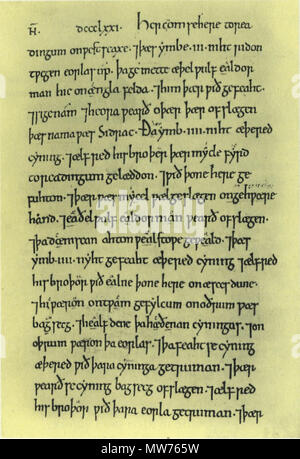 dccclxxi. Her com se here to rea
dingum on west seaxe. ⁊ þæs ymbe .iii. niht ridon
twegen eorlas up. þa gemette æþelwulf ealdor
man hie on engla felda. ⁊ him þær wið gefeaht.
⁊ sige nam. ⁊ heora wearð oþer þær ofslægen
þæs nama wæs Sidrac. Ða ymb .iiii. niht æþered
cyning. ⁊ ælfred his broþer þær mycle fyrd
to readingum gelæddon. ⁊ wið þone here ge
fuhton. ⁊ þær wæs mycel wælgeslægen on gehwæþere
hand. ⁊ eaðelwulf ealdorman wearð ofslægen.
⁊ þa deniscan ahton wælstowe geweald. ⁊ þæs
ymb .iiii. nyht gefeaht æþered cyning ⁊ ælfred
his broþor wið ealne þone here on æscesdune.
⁊ hi wæron on twam gefylcum on oðrum wæs
bagsecg. ⁊ healfdene þa hæðenan cyningas. ⁊ on
oþrum wæron þa eorlas. ⁊ þa feaht se cyning
æþered wið þara cyninga getruman. ⁊ þær
wearð se cyning bagsecg ofslægen. ⁊ ælfred
his broþor wið þara eorla getruman. ⁊ þær
alamy
Image ID: MW765W
www.alamy.com